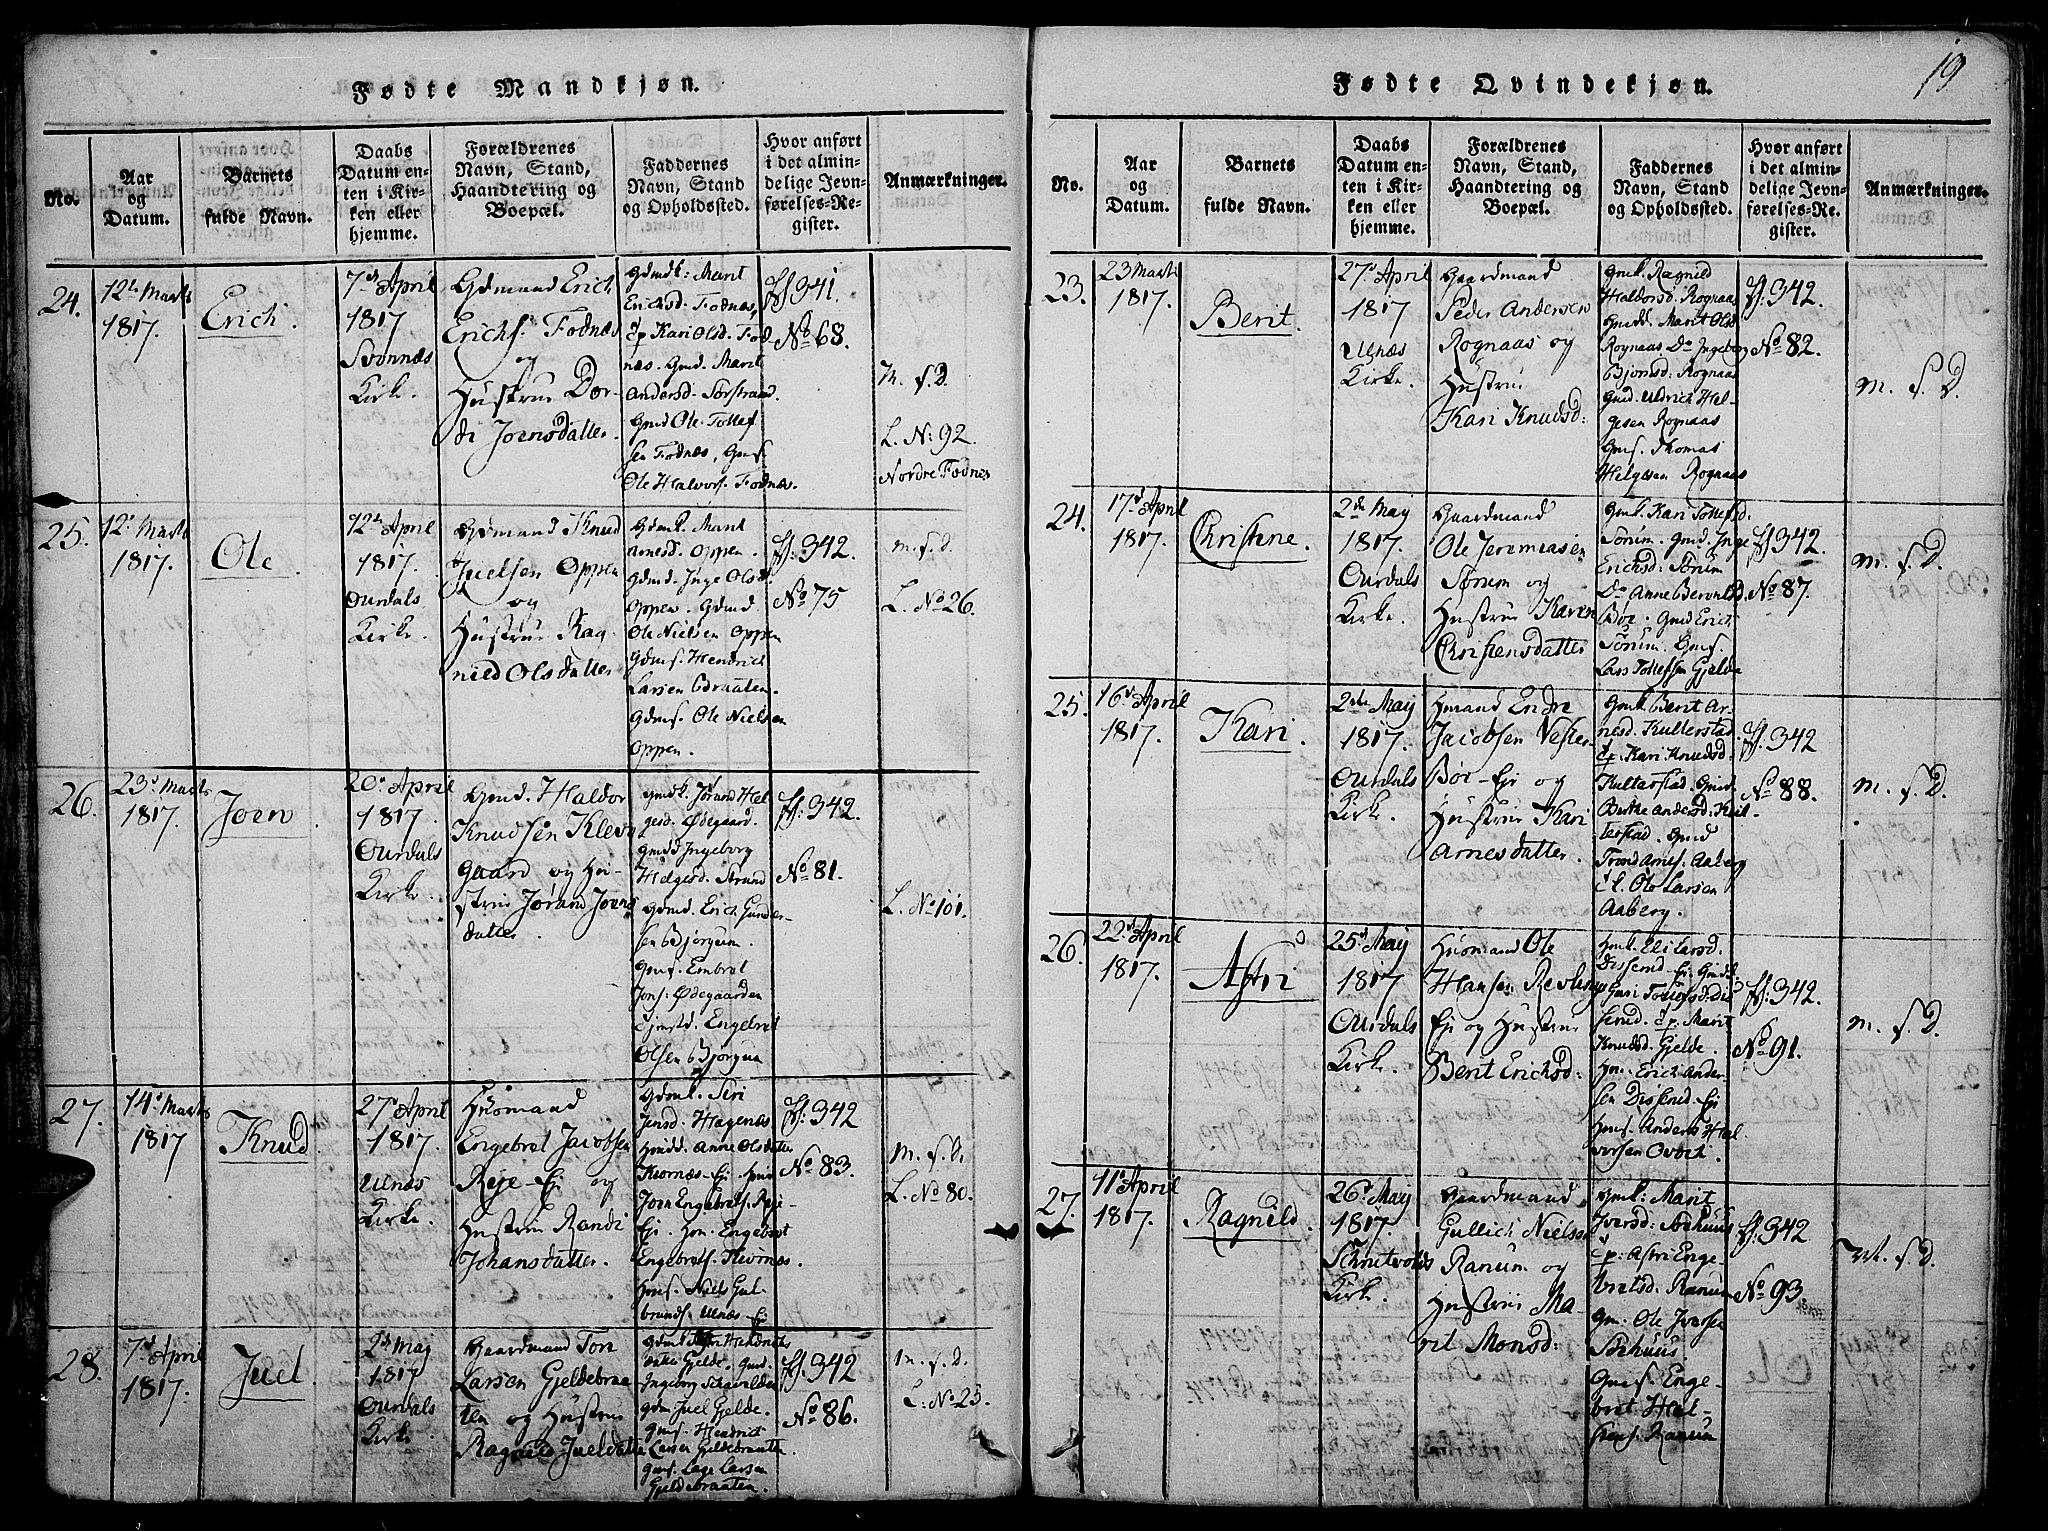 19
Fødte Mandkjøn.
No.
Aar
og
Datum.
Barnets
fulde Navn.
Daabs
Datum en-
ten i Kir-
ken eller
hjemme.
Forældrenes
Navn, Stand,
Haandtering og
Boepæl.
Faddernes
Navn, Stand
og Opholdssted.
Hvor anført
i det almin-
delige Jevn-
førelses-Re-
gister.
Anmærkninger.
24.
12te Marts
1817.
Erich.
7de April
1817
Svennæs
Kirke.
Gdmand Erich
Erichs. Fodnæs
og
Hustrue Dor-
de Joensdatter.
Gdmdk: Marit
Ericksd. Fodnæs,
Kari Olsd. Fod-
næs. Gmd. Marit
Andersd. Sørstrand.
Gmd Ole Tollef-
sen Fodnæs, Gms.
Ole Halvors. Fodnæs.
341.
No 68.
m. f. D.
L. No: 92.
Nordre Fodnes
25.
12te Marts
1817.
Ole.
12te April
1817.
Ourdals
Kirke.
Gdmand Knud
Juelsen Oppen
og
Hustrue Rag-
nild Olsdatter
Gdmk. Marit
Arnesd. Oppen.
Gdmd. Inge Olsd.
Oppen. Gdmd
Ole Nielsen Oppen
Gdms. Hendrich
Larsen Braaten.
Gdms. Ole Nielsen
Oppen.
342.
No 75
m. f. D.
L. No 26.
26.
23d Marts
1817.
Joen.
20de April
1817.
Ourdals
Kirke.
Gmd. Haldor
Knudsen Klevs
gaard og Hu-
strue Jørand Joens
datter.
Gmdk. Jørand Hel-
gesd. Ødegaard.
Gmdd Ingeborg
Helgesd. Strand
Gdmd. Erich Gunder-
sen Bjørgum.
Gms. Embret
Jons: Ødegaarden
Engebret
Olsen Bjørgum
342.
No 81.
L. No 101.
27.
14de Marts
1817
Knud.
27de April
1817.
Ulnæs
Kirke.
Huusmand
Engebret Jacobsen
Reje-Ej og
Hustrue Randi
Johansdatter.
Gdmk. Siri
Jensd. Hagenæs
Hmdd. Anne Olsdatter
Kvornæs-Ej
Joen Engebrets. Reje-
Ej. Hm. Engebret
Engebrets.
Hms. Niels Gul-
brands. Ulnæs-Ej
342
No 83.
m. f. D.
L. No 80.
28.
7de April
1817.
Juel.
2den Maj
1817
Ourdals
Kirke
Gaardmand Tore
Larsen Gjeldebraa-
ten og Hustrue
Ragnild Jueldatter
Gjelde. Gmd.
Ingeborg
Gdm Juel Gjelde.
Gms. Hendrich
Larsen Gjeldebraaten.
Gms. Lage Larsen
Gjeldebraaten.
342
No 86.
m. f. D.
L: No 25.
Fødte Qvindekjøn.
No.
Aar
og
Datum.
Barnets
fulde Navn.
Daabs
Datum en-
ten i Kir-
ken eller
hjemme.
Forældrenes
Navn, Stand,
Haandtering og
Boepæl.
Faddernes
Navn, Stand
og Opholdssted.
Hvor anført
i det almin-
delige Jevn-
førelses-Re-
gister.
Anmærkninger.
23.
23 Marts
1817.
Berit.
27de April
1817
Ulnæs
Kirke.
Gaardmand
Peder Andersen
Rognaas og
Hustrue
Kari Knudsd:
Gmk. Ragnild
Haldorsd. Rognaas
Gmdd. Marit Olsd
Rognaas Do Ingeborg
Bjønsd: Rognaas
Gmd. Uldrich Hel-
gesen Rognaas
Gms. Thomas
Helgesen Rognaas
342.
No 82.
m. f. D.
24.
17de April
1817.
Christine.
2den May
1817.
Ourdals
Kirke.
Gaardmand
Ole Jeremiasen
Sørum og
Hustrue Karen
Christensdatter
Gmk. Kari Tollefsd.
Sørum. Gmd. Inge
Erichsd: Sørum
Do Anne
Bøe. Gmd Erich
Sørum. Gms.
Lars Tollefsen Gjelde
342.
No 87.
m. f. D.
25.
16de April
1817.
Kari.
2den May
1817.
Ourdals
Kirke.
Hmand Endre
Jacobsen Vester-
Bøe-Ej og
Hustrue Kari
Arnesdatter.
Gmk Berit Ar-
nesd. Kulterstad.
Kari Knudsd.
Kulterstad. Gmd.
Birthe Andersd: Kul-
terstad. Gmd
Trond Arnes. Aaberg
Ole Larsen
Aaberg.
342
No 88.
m. f. D.
26.
22de April
1817.
Astri
25de May
1817
Ourdals
Kirke.
Huusmand Ole
Hansen
Ej og Hustrue
Berit Erichsd:
Hmk. Eli Larsd.
Disserud-Ej. Gmd.
Guri Tollefsd. Dis-
serud. Marit
Knudsd. Gjelde.
Hm. Erich Ander-
sen Disserud-Ej
Hms. Anders Hal-
vorsen
342.
No 91.
m. f. D.
27.
11te April
1817.
Ragnild.
26de May
1817.
Skrutvolds
Kirke.
Gaardmand
Gullich Nielsen
Ranum og
Hustrue Ma-
rit Monsd:
Gmk: Marit
Iversd:
Astri Enge-
bretsd. Ranum
Gm. Ole Iversen
Gms. Enge-
bret Hel-
Ranum
342
No 93.
m. f. D.